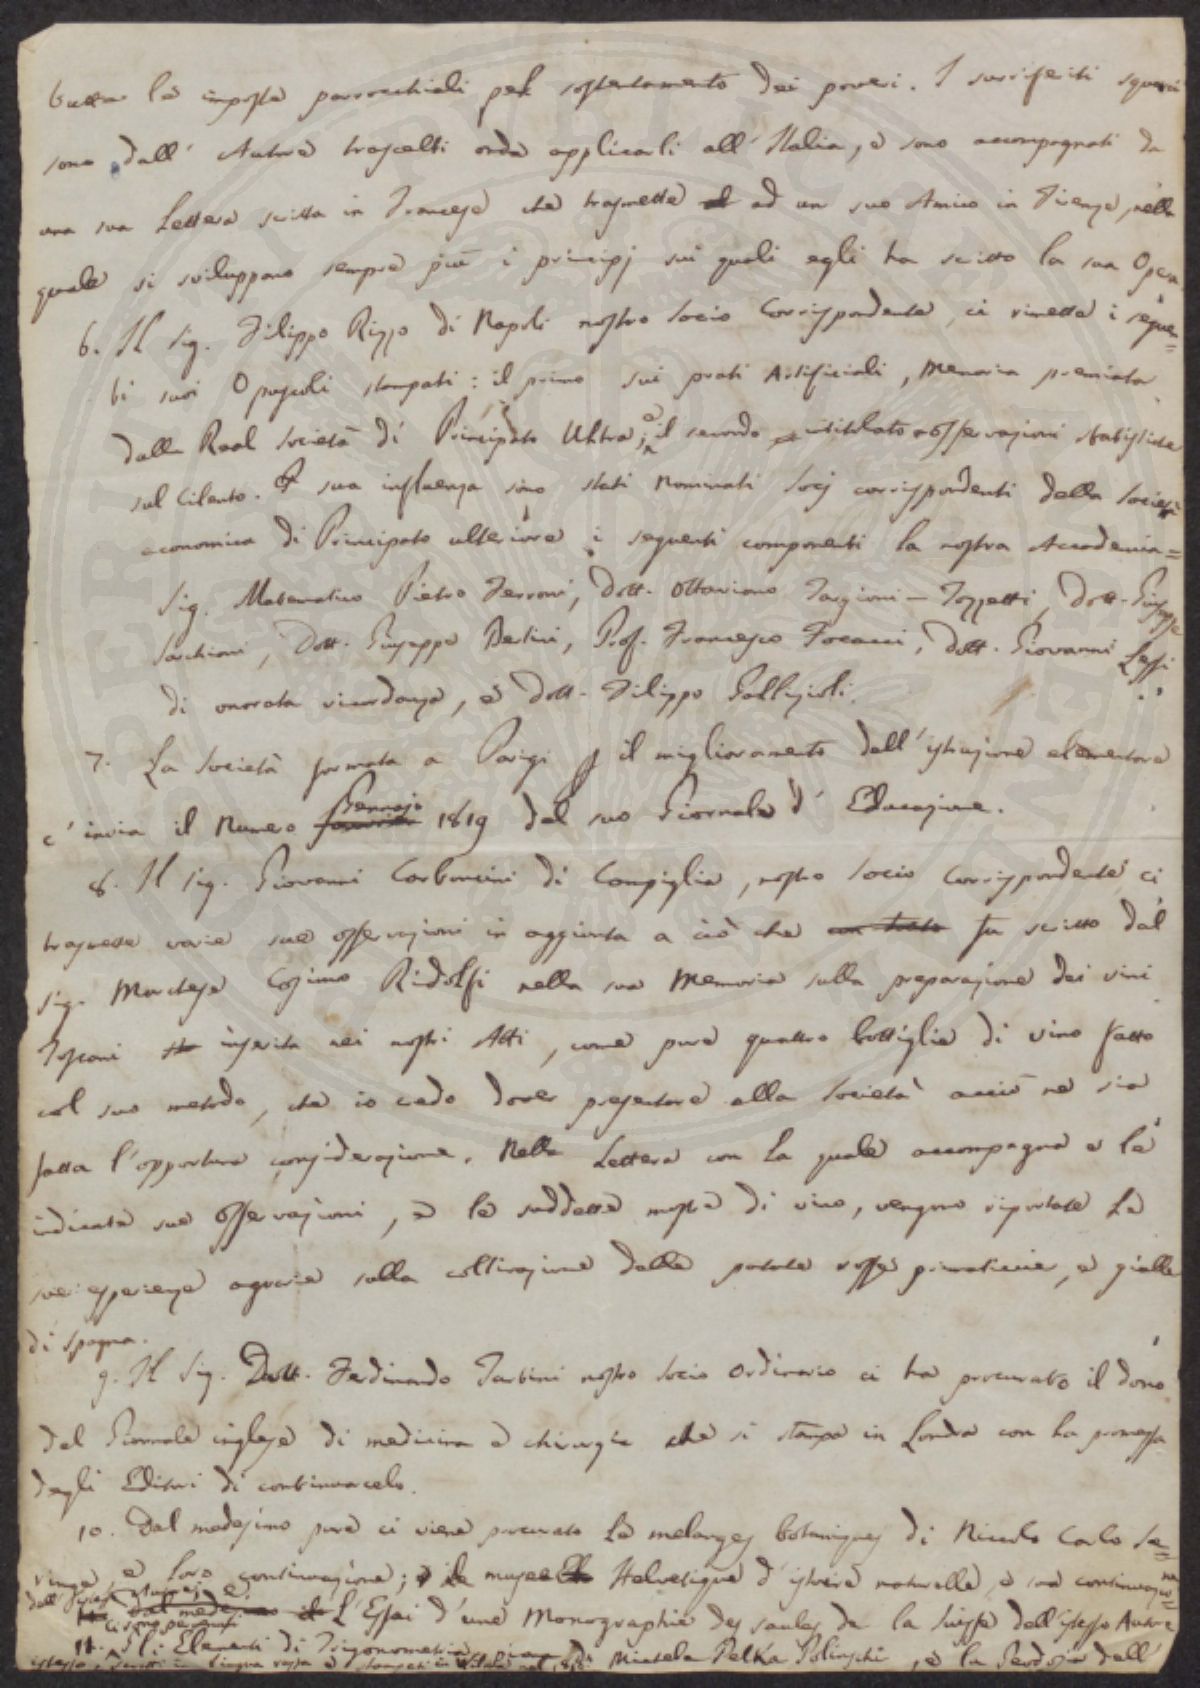 tutte le imposte parrocchiali pel sostentamento dei poveri. I surriferiti squarci
sono dall' Autore trascelti onde applicarli all' Italia, e sono accompagnati da
una sua Lettera scritta in Francese che trasmette ad un suo Amico in Firenze, nella
quale si sviluppano sempre più i principj sui quali egli ha scritto la sua Opera
6. Il Sig. Filippo Rizzo di Napoli nostro Socio Corrispondente, ci rimette i seguen=
ti suoi Opuscoli stampati: il primo sui prati Artificiali, Memoria premiata
dalla Real Società di Principato Ultra; e il secondo intitolato osservazioni statistiche
sul Cilento. A sua influenza sono stati nominati Socj corrispondenti della Società
economica di Principato ulteriore i seguenti componenti la nostra Accademia=
Sig. Matematico Pietro Ferroni, Dott. Ottaviano Targioni-Tozzetti, Dott. Giuseppe
Sarchiani, Dott. Giuseppe Bertini, Prof. Francesco Focacci, Dott. Giovanni Lessi
di onorata ricordanza, e Dott. Filippo Gallizioli.
7. La Società formata a Parigi p il miglioramento dell' istruzione elementare
c' invia il Numero Gennajo 1819 del suo Giornale d' Educazione.
8. Il Sig. Giovanni Carboncini di Campiglia, nostro Socio Corrispondente, ci
trasmette varie sue osservazioni in aggiunta a ciò che fu scritto dal
Sig. Marchese Cosimo Ridolfi nella sua Memoria sulla preparazione dei vini
Toscani inserita nei nostri Atti, come pure quattro bottiglie di vino fatto
col suo metodo, che io credo dover presentare alla Società acciò ne sia
fatta l'opportuna considerazione. Nella Lettera con la quale accompagna e le
indicate sue osservazioni, e le suddette mostre di vino, vengono riportate le
sue esperienze agrarie sulla coltivazione delle patate rosse primaticcie, e gialle
di Spagna.
9. Il Sig. Dott. Ferdinando Tartini nostro Socio Ordinario ci ha procurato il dono
del Giornale inglese di medicina e chirurgia che si stampa in Londra con la promessa
degli Editori di continuarcelo.
10. Dal medesimo pure ci viene procurato Le melanges botaniques di Niccolo Carlo Se=
ringe e loro continuazione; e il musee Helvetique d'istoire naturelle, e sua continuazio=ne
dell' istesso Autore, e L'Essai d'une Monographie des saules de la Suisse dell'istesso Autore
11. Gli Elementi di Trigonometria piana di Michele Pelka Polinschi, e la Geodesia dell'
istesso, scritti in lingua russa e stampati in Wilna nel